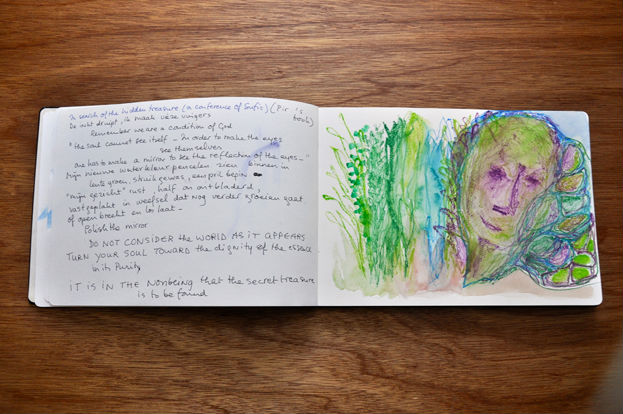 In search of the hidden treasure (a conference of Sufis) (Pir's book)
De inkt druipt, ik maak vieze vingers
Remember we are a condition of God
"the soul cannot see itself - In order to make the eyes
see themselves
one has to make a mirror to see the reflection of the eyes -"
Mijn nieuwe waterkleur penselen zien binnen in
lente groen, struikgewas, een pril begin
"mijn gezicht" rust, half ontbladerd,
vastgeplakt in weefsel dat nog verder groeien gaat
of openbreekt en los laat -
Polish the mirror
DO NOT CONSIDER THE WORLD AS IT APPEARS
TURN YOUR SOUL TOWARD the dignity of the essence
in its Purity
IT IS IN THE NONbeing that the secret treasure
is to be found